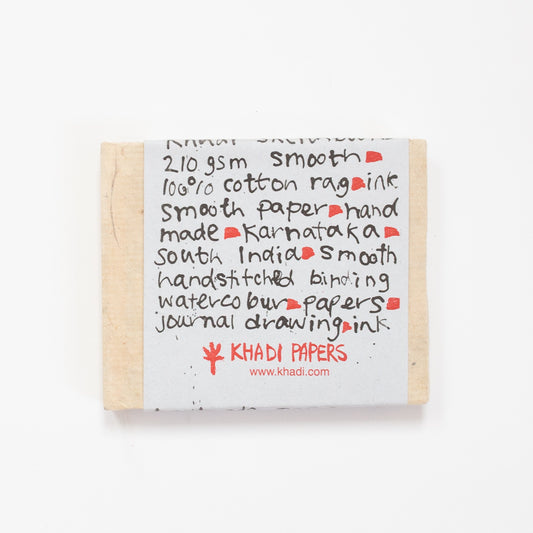 210 gsm smooth
100% cotton rag ink
smooth paper hand
made karnataka
south India smooth
handstitched binding
watercolour papers
journal drawing ink
KHADI PAPERS
www.khadi.com